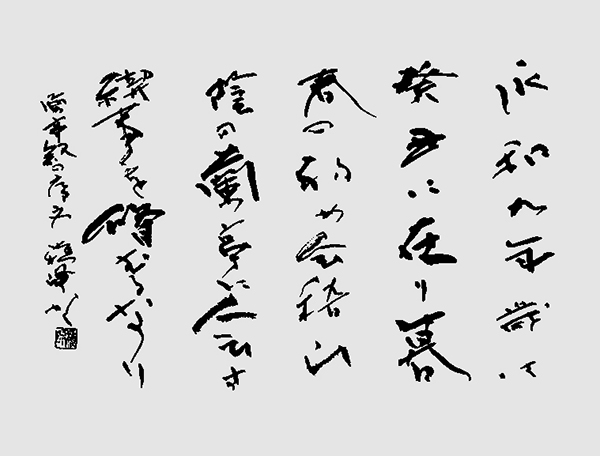 永和九年歳は
癸丑に在り暮
春の初め会稽山
陰の蘭亭に会す
禊事を脩むるなり
蘭亭叙の一節